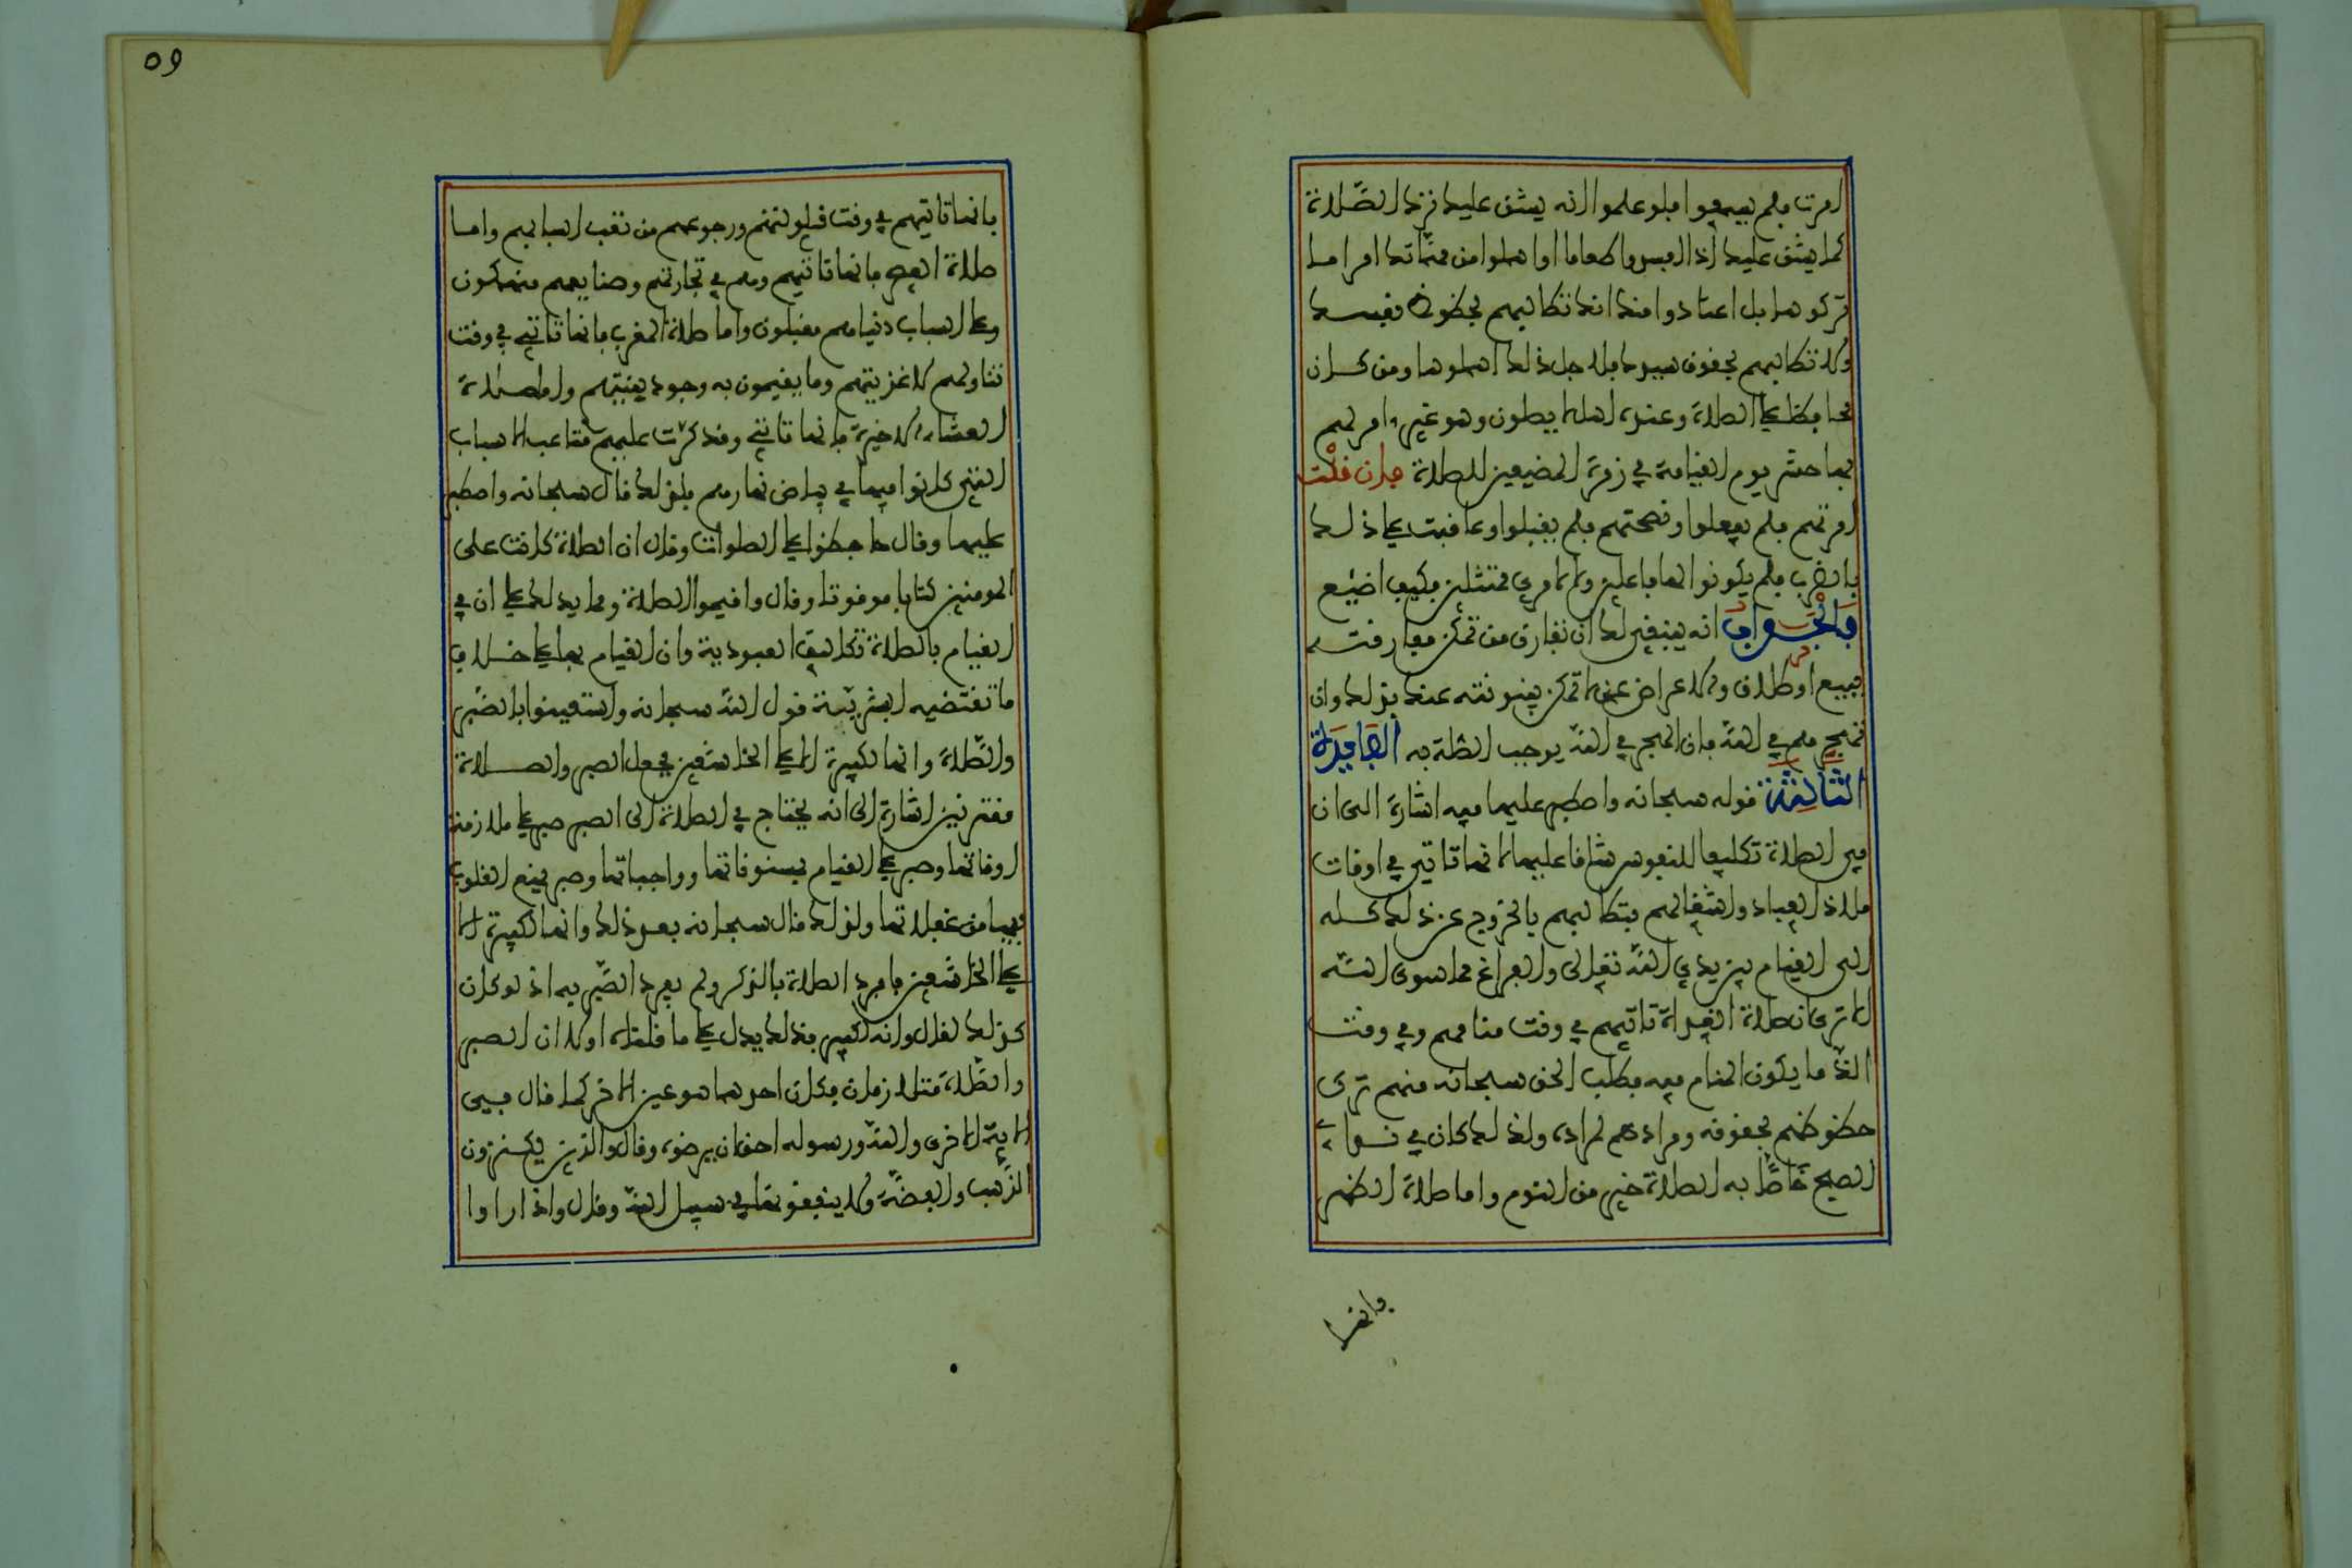 امرت فلم يسمعوا فلو علموا انه يشق عليك ترك الصلاة
كما يشق عليك اذا افسدوا طعاما او اهملوا من مهماتك امرا ما
تركوها بل اعتادوا منك انك تطالبهم بحظوظ نفسك
ولا تطالبهم بحقوق سيدك فلاجل ذلك اهملوها ومن كان
محافظا على الصلاة وعنده اهل لا يصلون وهو غير ءامر لهم
بها حشر يوم القيامة في زمرة المضيعين للصلاة فان قلت
امرتهم فلم يفعلوا ونصحتهم فلم يقبلوا وعاقبت على ذلك
بالضرب فلم يكونوا لها فاعلين ولا لامري ممتثلين فكيف اصنع
فالجواب انه ينبغي لك ان تفارق من تمكن مفارقته
ببيع او طلاق والاعراض عن لا تمكن بينونته عنك بذلك وان
تهجرهم في الله فان الهجر في الله يوجب الصلة به الفائدة
الثالثة قوله سبحانه واصطبر عليها فيه اشارة الى ان
في الصلاة تكليفا للنفوس شاقا عليها لانها تاتي في اوقات
ملاذ العباد واشغالهم فتطالبهم بالخروج عن ذلك كله
الى القيام بين يدي الله تعالى والفراغ مما سوى الله
الا ترى ان صلاة الغداة تاتيهم في وقت منامهم وفي وقت
الذ ما يكون المنام فيه فطلب الحق سبحانه منهم ترك
حظوظهم لحقوقه ومرادهم لمراده ولذلك كان في نداء
الصبح خاصا به الصلاة خير من النوم واما صلاة الظهر
فانها
بانها تاتيهم في وقت قيلولتهم ورجوعهم من تعب اسبابهم واما
صلاة العصر فانها تاتيهم وهم في تجارتهم وصنايعهم منهمكون
وعلى اسباب دنياهم مقبلون واما صلاة المغرب فانها تاتي في وقت
تناولهم لاغذيتهم وما يقيمون به وجود بنيتهم واما صلاة
العشاء الاخيرة فانها تاتي وقد كثرت عليهم متاعب الاسباب
التي كانوا فيها في بياض نهارهم فلذلك قال سبحانه واصطبر
عليها وقال حافظوا على الصلوات وقال ان الصلاة كانت على
المومنين كتابا موقوتا وقال واقيموا الصلاة ومما يدلك على ان في
القيام بالصلاة تكاليف العبودية وان القيام بها على خلاف
ما تقتضيه البشرية قول الله سبحانه واستعينوا بالصبر
والصلاة وانها لكبيرة الا على الخاشعين فجعل الصبر والصلاة
مقترنين اشارة الى انه يحتاج في الصلاة الى الصبر صبر على ملازمة
اوقاتها وصبر على القيام بمسنوناتها وواجباتها وصبر يمنع القلوب
فيها من غفلاتها ولذلك قال سبحانه بعد ذلك وانها لكبيرة الا
على الخاشعين فافرد الصلاة بالذكر ولم يفرد الصبر به اذ لو كان
كذلك لقال وانه لكبير فذلك يدل على ما قلناه او لان الصبر
والصلاة متلازمان فكان احدهما هو عين الاخر كما قال في
الاية الاخرى والله ورسوله احق ان يرضوه وقال والذين يكنزون
الذهب والفضة ولا ينفقونها في سبيل الله وقال واذا راوا